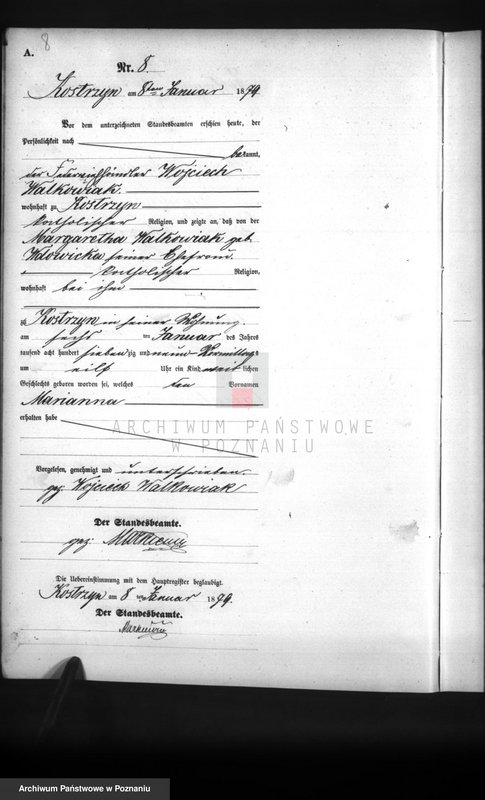 8
A.
Nr. 8.
Kostrzyn am 8ten Januar 1879
Vor dem unterzeichneten Standesbeamten erschien heute, der
Persönlichkeit nach
bekannt,
der Federviehhändler Wojciech
Walkowiak
wohnhaft zu Kostrzyn
katholischer Religion, und zeigte an, daß von der
Margaretha Walkowiak geb.
Wdowicka seiner Ehefrau
katholischer Religion,
wohnhaft bei ihm
zu Kostrzyn in seiner Wohnung
am sechs ten Januar des Jahres
tausend acht hundert sieben zig und neun Vormittags
um eilf Uhr ein Kind weib lichen
Geschlechts geboren worden sei, welches den Vornamen
Marianna
erhalten habe
ARCHIWUM PAŃSTWOWE
W POZNANIU
Vorgelesen, genehmigt und unterschrieben.
gez. Wojciech Walkowiak
Der Standesbeamte.
gez.
Die Uebereinstimmung mit dem Hauptregister beglaubigt.
Kostrzyn am 8 ten Januar 1879.
Der Standesbeamte.
Archiwum Państwowe w Poznaniu